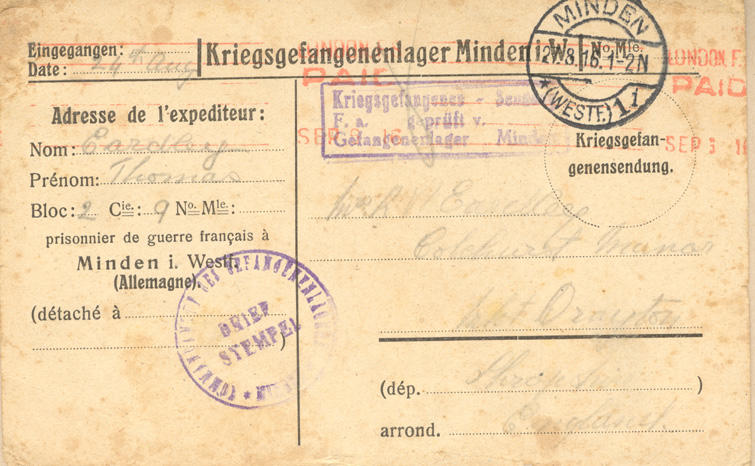 Eingegangen:
Date: 24th Aug
Kriegsgefangenenlager Minden i. W.
No. Mle.
MINDEN
27.8.16.1-2N
* (WESTF.) 1
LONDON. F.
PAID
SEP 3 16
LONDON. F.
PAID
SEP 3 16
Kriegsgefangenes - Send
F. a. geprüft v.
Gefangenenlager Minde
Kriegsgefan-
genensendung.
Adresse de l'expediteur:
Nom: Eardley
Prénom: Thomas
Bloc: 2 Cie: 9 No. Mle:
prisonnier de guerre français à
Minden i. Westf.
(Allemagne).
(détaché à
)
BRIEF
STEMPEL
Eardley
Drayton
(dép. Shropshire )
arrond. England